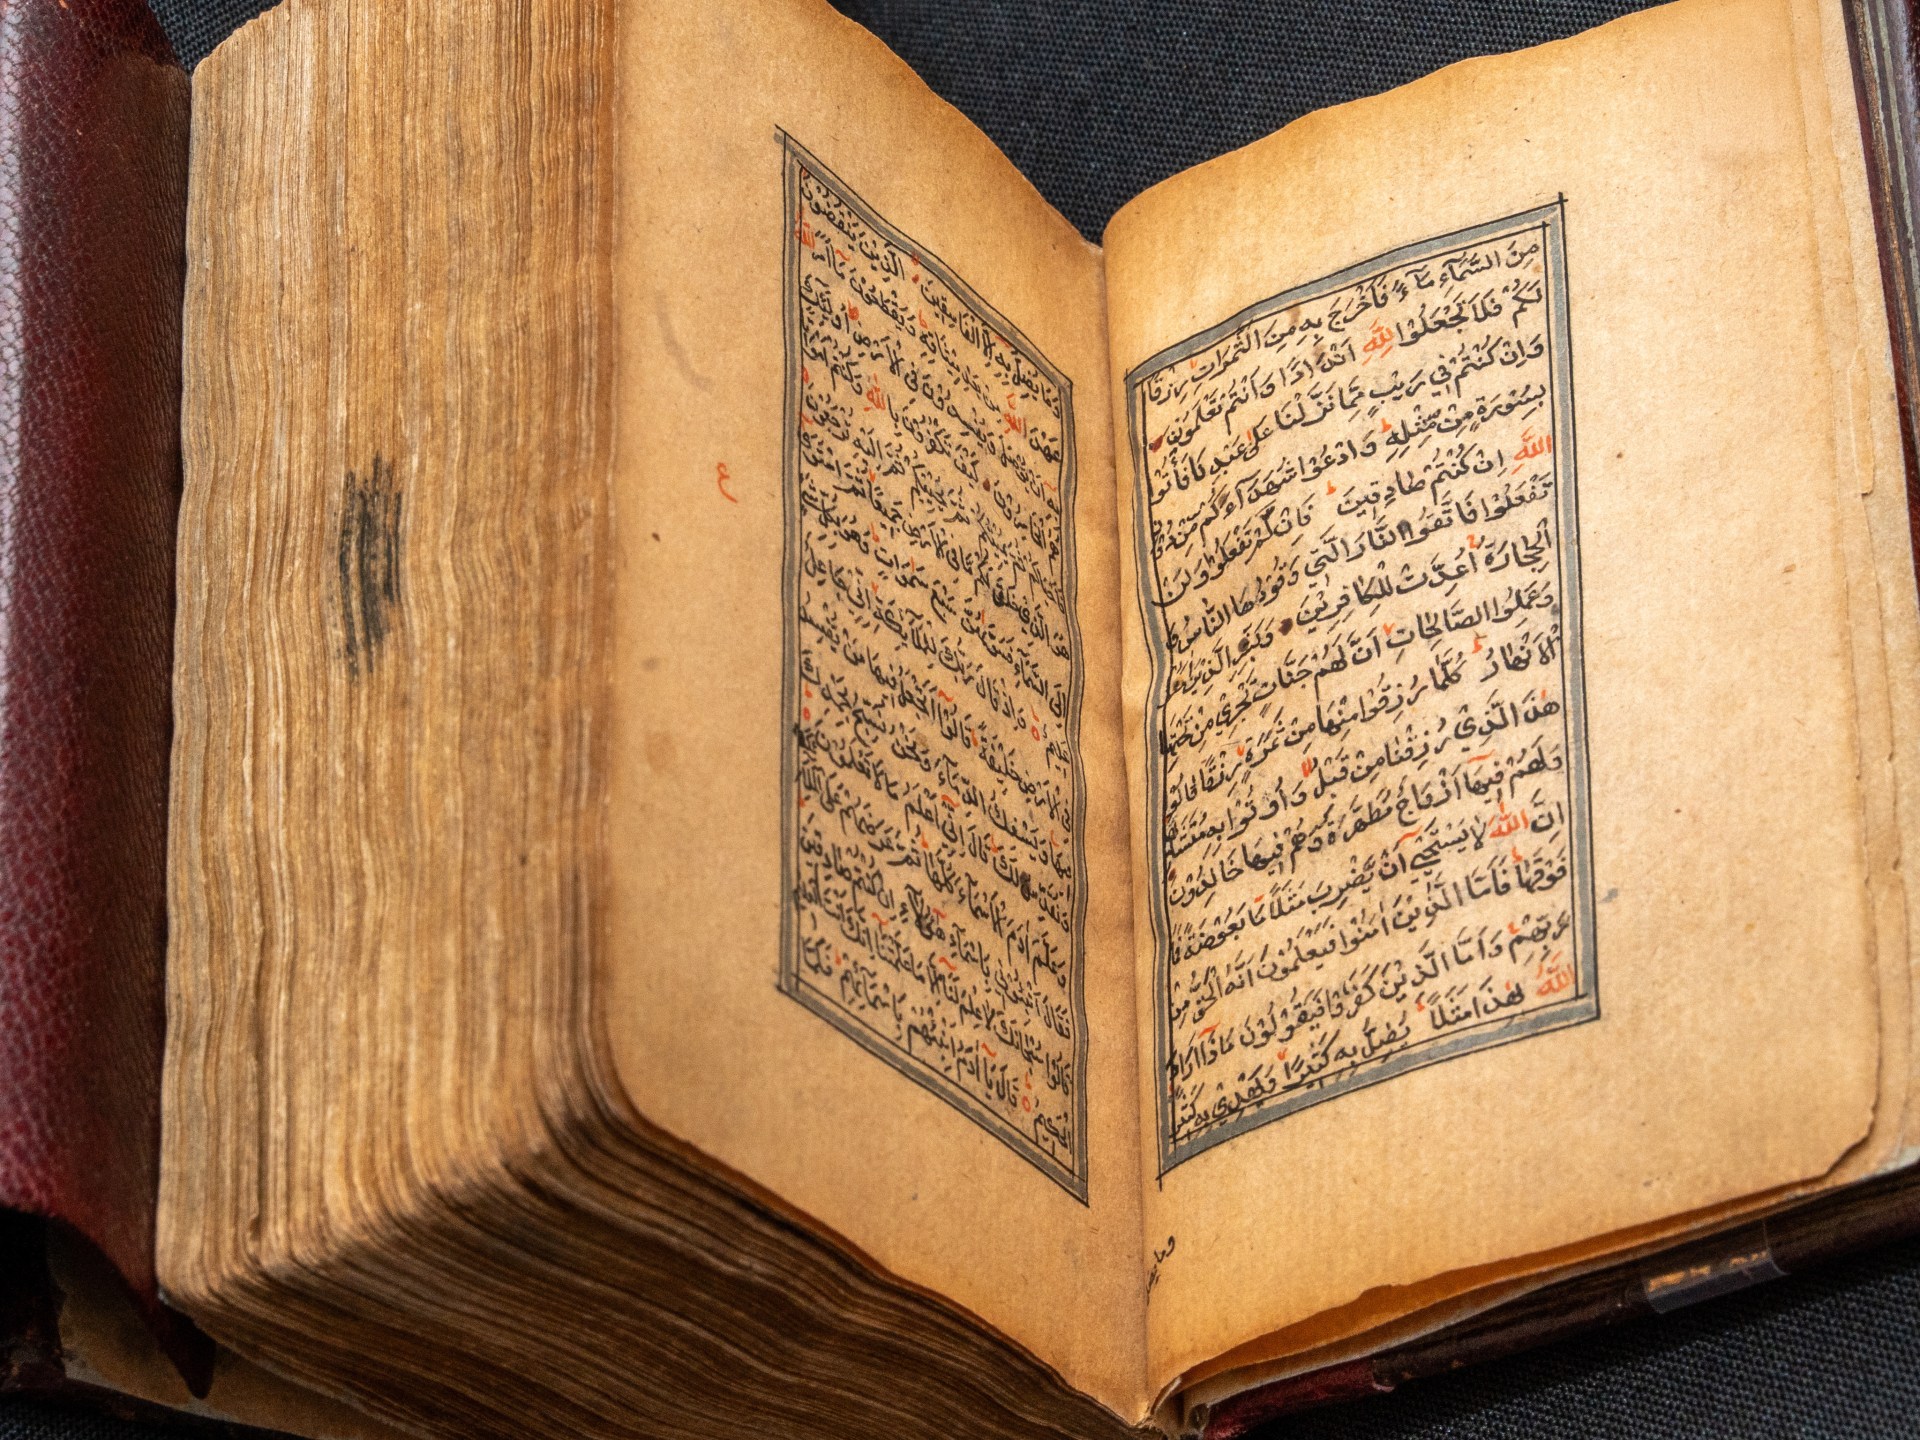 مِنَ السَّمَاءِ مَاءً فَاَخْرَجَ بِهِ مِنَ الثَّمَرَاتِ رِزْقًا
لَكُمْ فَلَا تَجْعَلُوْا لِلّٰهِ اَنْدَادًا وَاَنْتُمْ تَعْلَمُوْنَ
وَاِنْ كُنْتُمْ فِي رَيْبٍ مِمَّا نَزَّلْنَا عَلٰى عَبْدِنَا فَأْتُوْا
بِسُوْرَةٍ مِنْ مِّثْلِهِ وَادْعُوْا شُهَدَآءَكُمْ مِّنْ دُوْنِ
اللّٰهِ اِنْ كُنْتُمْ صَادِقِيْنَ فَاِنْ لَّمْ تَفْعَلُوْا وَلَنْ
تَفْعَلُوْا فَاتَّقُوا النَّارَ الَّتِيْ وَقُوْدُهَا النَّاسُ وَ
الْحِجَارَةُ اُعِدَّتْ لِلْكَافِرِيْنَ وَبَشِّرِ الَّذِيْنَ اٰمَنُوْا
وَعَمِلُوا الصَّالِحَاتِ اَنَّ لَهُمْ جَنَّاتٍ تَجْرِيْ مِنْ تَحْتِهَا
الْاَنْهَارُ كُلَّمَا رُزِقُوْا مِنْهَا مِنْ ثَمَرَةٍ رِزْقًا قَالُوْا
هٰذَا الَّذِيْ رُزِقْنَا مِنْ قَبْلُ وَاُوتُوْا بِهِ مُتَشَابِهًا
وَلَهُمْ فِيْهَا اَزْوَاجٌ مُطَهَّرَةٌ وَهُمْ فِيْهَا خَالِدُوْنَ
اِنَّ اللّٰهَ لَا يَسْتَحْيِيْ اَنْ يَّضْرِبَ مَثَلًا مَا بَعُوْضَةً فَمَا
فَوْقَهَا فَاَمَّا الَّذِيْنَ اٰمَنُوْا فَيَعْلَمُوْنَ اَنَّهُ الْحَقُّ مِنْ
رَبِّهِمْ وَاَمَّا الَّذِيْنَ كَفَرُوْا فَيَقُوْلُوْنَ مَاذَآ اَرَادَ
اللّٰهُ بِهٰذَا مَثَلًا يُضِلُّ بِهِ كَثِيْرًا وَيَهْدِيْ بِهِ كَثِيْرًا
وما يضل
وَمَا يُضِلُّ بِهِ اِلَّا الْفَاسِقِيْنَ الَّذِيْنَ يَنْقُضُوْنَ
عَهْدَ اللّٰهِ مِنْ بَعْدِ مِيْثَاقِهِ وَيَقْطَعُوْنَ مَا اَمَرَ اللّٰهُ
بِهِ اَنْ يُوْصَلَ وَيُفْسِدُوْنَ فِي الْاَرْضِ اُولٰئِكَ
هُمُ الْخَاسِرُوْنَ كَيْفَ تَكْفُرُوْنَ بِاللّٰهِ وَكُنْتُمْ اَمْوَاتًا
فَاَحْيَاكُمْ ثُمَّ يُمِيْتُكُمْ ثُمَّ يُحْيِيْكُمْ ثُمَّ اِلَيْهِ تُرْجَعُوْنَ
هُوَ الَّذِيْ خَلَقَ لَكُمْ مَا فِي الْاَرْضِ جَمِيْعًا ثُمَّ اسْتَوٰى
اِلَى السَّمَآءِ فَسَوّٰىهُنَّ سَبْعَ سَمٰوَاتٍ وَهُوَ بِكُلِّ شَيْءٍ
عَلِيْمٌ وَاِذْ قَالَ رَبُّكَ لِلْمَلٰٓئِكَةِ اِنِّيْ جَاعِلٌ
فِي الْاَرْضِ خَلِيْفَةً قَالُوْا اَتَجْعَلُ فِيْهَا مَنْ يُّفْسِدُ
فِيْهَا وَيَسْفِكُ الدِّمَآءَ وَنَحْنُ نُسَبِّحُ بِحَمْدِكَ
وَنُقَدِّسُ لَكَ قَالَ اِنِّيْ اَعْلَمُ مَا لَا تَعْلَمُوْنَ
وَعَلَّمَ اٰدَمَ الْاَسْمَآءَ كُلَّهَا ثُمَّ عَرَضَهُمْ عَلَى الْمَلٰٓئِكَةِ
فَقَالَ اَنْبِئُوْنِيْ بِاَسْمَآءِ هٰٓؤُلَآءِ اِنْ كُنْتُمْ صَادِقِيْنَ
قَالُوْا سُبْحَانَكَ لَا عِلْمَ لَنَا اِلَّا مَا عَلَّمْتَنَا اِنَّكَ اَنْتَ الْعَلِيْمُ
الْحَكِيْمُ قَالَ يَآ اٰدَمُ اَنْبِئْهُمْ بِاَسْمَآئِهِمْ فَلَمَّا
ع